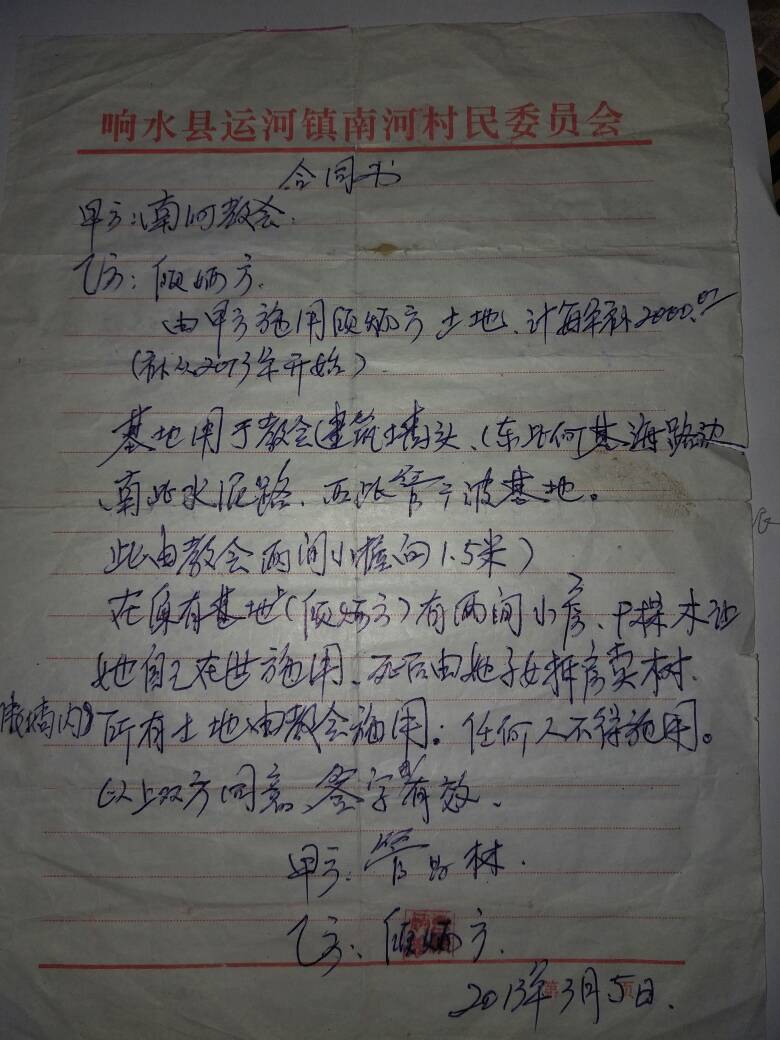 响水县运河镇南河村民委员会
合同书
甲方：南河教会.
乙方：顾炳方.
由甲方施用顾炳方土地、计每年补2000.00
(补从2013年开始)
基地用于教会(建筑墙头、(东北何基海路边
南北水泥路、西北管广波基地。
北由教会两间小屋向1.5米)
在原有基地上(顾炳方)有两间小房、棵木让
她自己在世施用、死后由她子女拆房卖树.
(墙内)所有土地由教会施用。任何人不得施用。
以上双方同意、签字有效、
甲方：管 林.
乙方：顾炳方.
2013年3月5日.
第 页